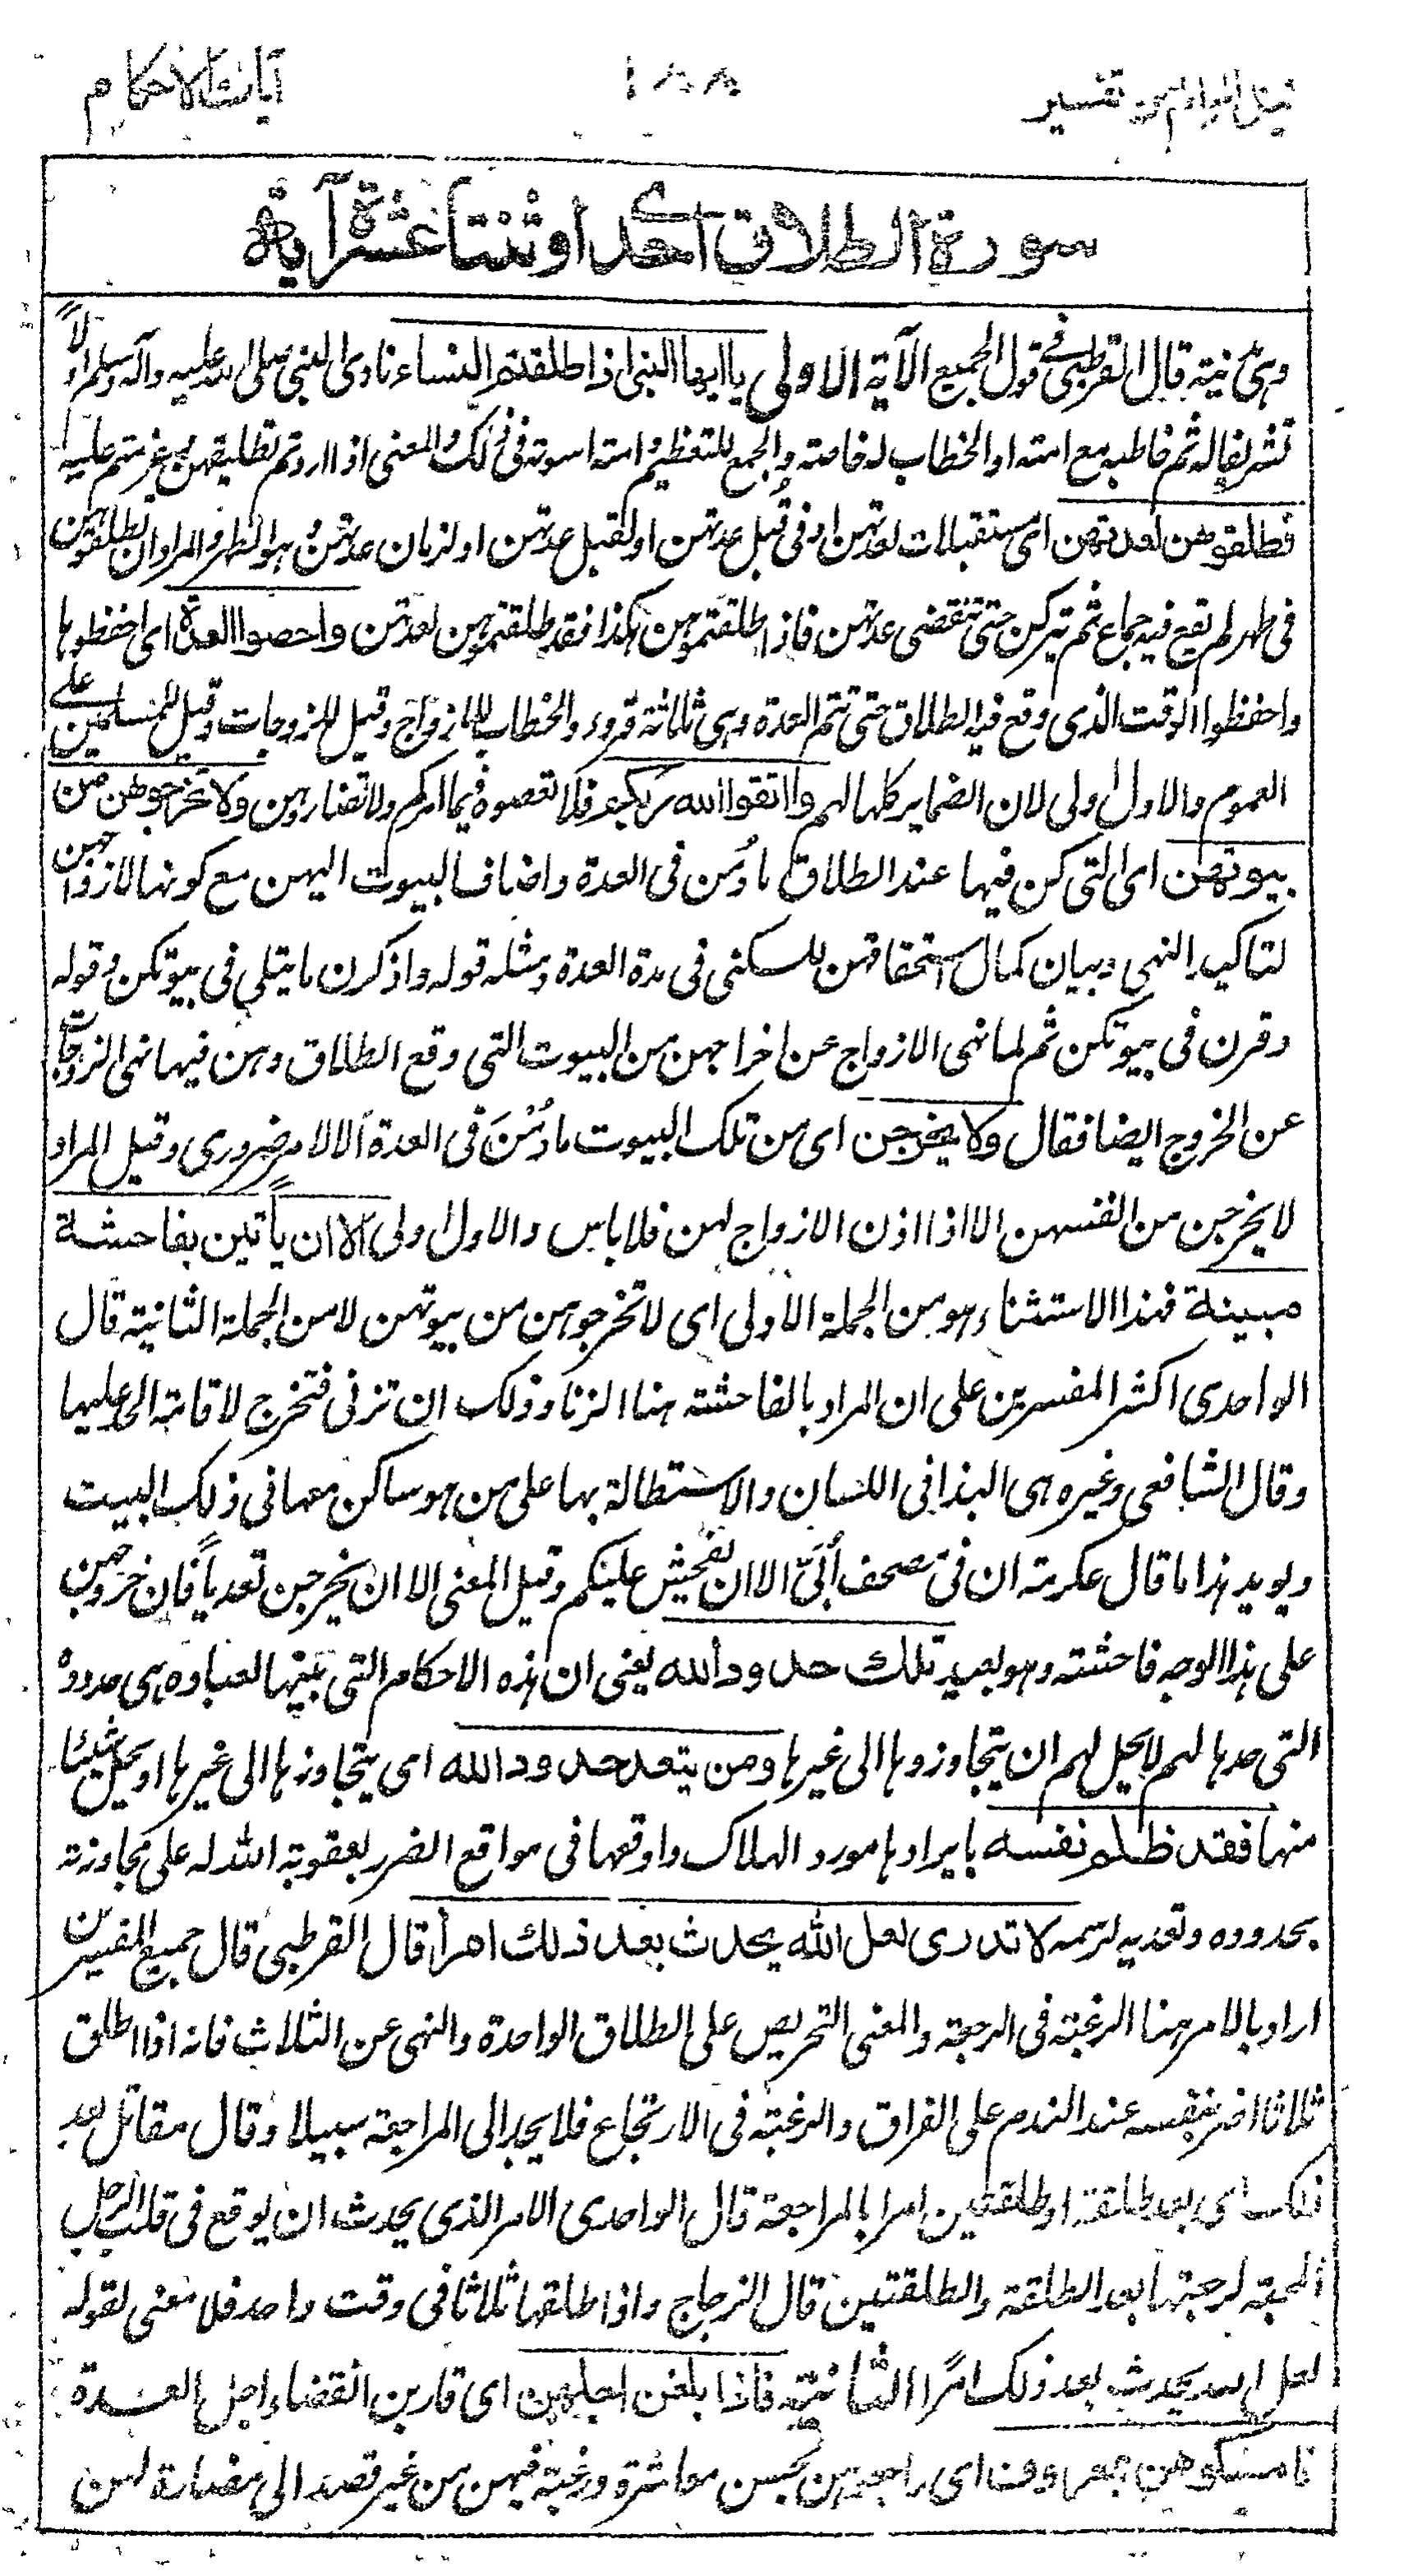 نيل المرام من تفسير ١٨٨ آيات الاحكام
سورة الطلاق احدى او ثنتا عشرة آية
وهى مدنية قال القرطبي في قول الجميع الآية الاولى يا ايها النبي اذا طلقتم النساء نادى النبي صلى الله عليه وآله وسلم اولاً
تشريفا له ثم خاطبه مع امته او الخطاب له خاصة والجمع للتعظيم وامته اسوته في ذلك والمعنى اذا اردتم تطليقهن وعزمتم عليه
فطلقوهن لعدتهن اى مستقبلات لعدتهن او في قبل عدتهن او لقبل عدتهن او لزمان عدتهن وهو الطهر والمراد ان يطلقوهن
في طهر لم يقع فيه جماع ثم يتركن حتى تنقضى عدتهن فاذا طلقتموهن هكذا فقد طلقتموهن لعدتهن واحصوا العدة اى احفظوها
واحفظوا الوقت الذى وقع فيه الطلاق حتى تتم العدة وهى ثلاثة قروء والخطاب للازواج وقيل للزوجات وقيل للمسلمين على
العموم والاول اولى لان الضماير كلها لهم واتقوا الله ربكم فلا تعصوه فيما امركم ولا تضاروهن ولا تخرجوهن من
بيوتهن اى التى كن فيها عند الطلاق ما دمن فى العدة واضاف البيوت اليهن مع كونها لازواجهن
لتاكيد النهى وبيان كمال استحقاقهن للسكنى فى مدة العدة ومثله قوله واذكرن ما يتلى فى بيوتكن وقوله
وقرن فى بيوتكن ثم لما نهى الازواج عن اخراجهن من البيوت التى وقع الطلاق وهن فيها نهى الزوجات
عن الخروج ايضا فقال ولا يخرجن اى من تلك البيوت ما دُمْنَ فى العدة الا لامر ضرورى وقيل المراد
لا يخرجن من انفسهن الا اذا اذن الازواج لهن فلا باس والاول اولى الا ان يأتين بفاحشة
مبينة فهذا الاستثناء هو من الجملة الاولى اى لا تخرجوهن من بيوتهن لا من الجملة الثانية قال
الواحدى اكثر المفسرين على ان المراد بالفاحشة هنا الزنا وذلك ان تزنى فتخرج لاقامة الحد عليها
وقال الشافعى وغيره هى البذا فى اللسان والاستطالة بها على من هو ساكن معها فى ذلك البيت
ويويد هذا ما قال عكرمة ان فى مصحف أُبَىّ الا ان يفحش عليكم وقيل المعنى الا ان يخرجن تعدياً فان خروجهن
على هذا الوجه فاحشة وهو بعيد تلك حدود الله يعنى ان هذه الاحكام التى بينها لعباده هى حدوده
التى حدها لهم لا يحل لهم ان يتجاوزوها الى غيرها ومن يتعد حدود الله اى يتجاوزها الى غيرها او يحل شيئا
منها فقد ظلم نفسه بايرادها مورد الهلاك واوقعها فى مواقع الضرر بعقوبة الله له على مجاوزته
بحدوده وتعديه لرسمه لا تدرى لعل الله يحدث بعد ذلك امراً قال القرطبى قال جميع المفسرين
اراد بالامر هنا الرغبة فى الرجعة والمعنى التحريص على الطلاق الواحدة والنهى عن الثلاث فانه اذا طلق
ثلاثا اضر بنفسه عند الندم على الفراق والرغبة فى الارتجاع فلا يجد الى المراجعة سبيلا وقال مقاتل بعد
ذلك اى بعد طلقة او طلقتين امرا بالمراجعة قال الواحدى الامر الذى يحدث ان يوقع فى قلب الرجل
المحبة لرجعتها بعد الطلقة والطلقتين قال الزجاج واذا طلقها ثلاثا فى وقت واحد فلا معنى لقوله
لعل الله يحدث بعد ذلك امرًا الثانية فاذا بلغن اجلهن اى قاربن انقضاء اجل العدة
فامسكوهن بمعروف اى راجعوهن بحسن معاشرة ورغبة فيهن من غير قصد الى مضارة لهن